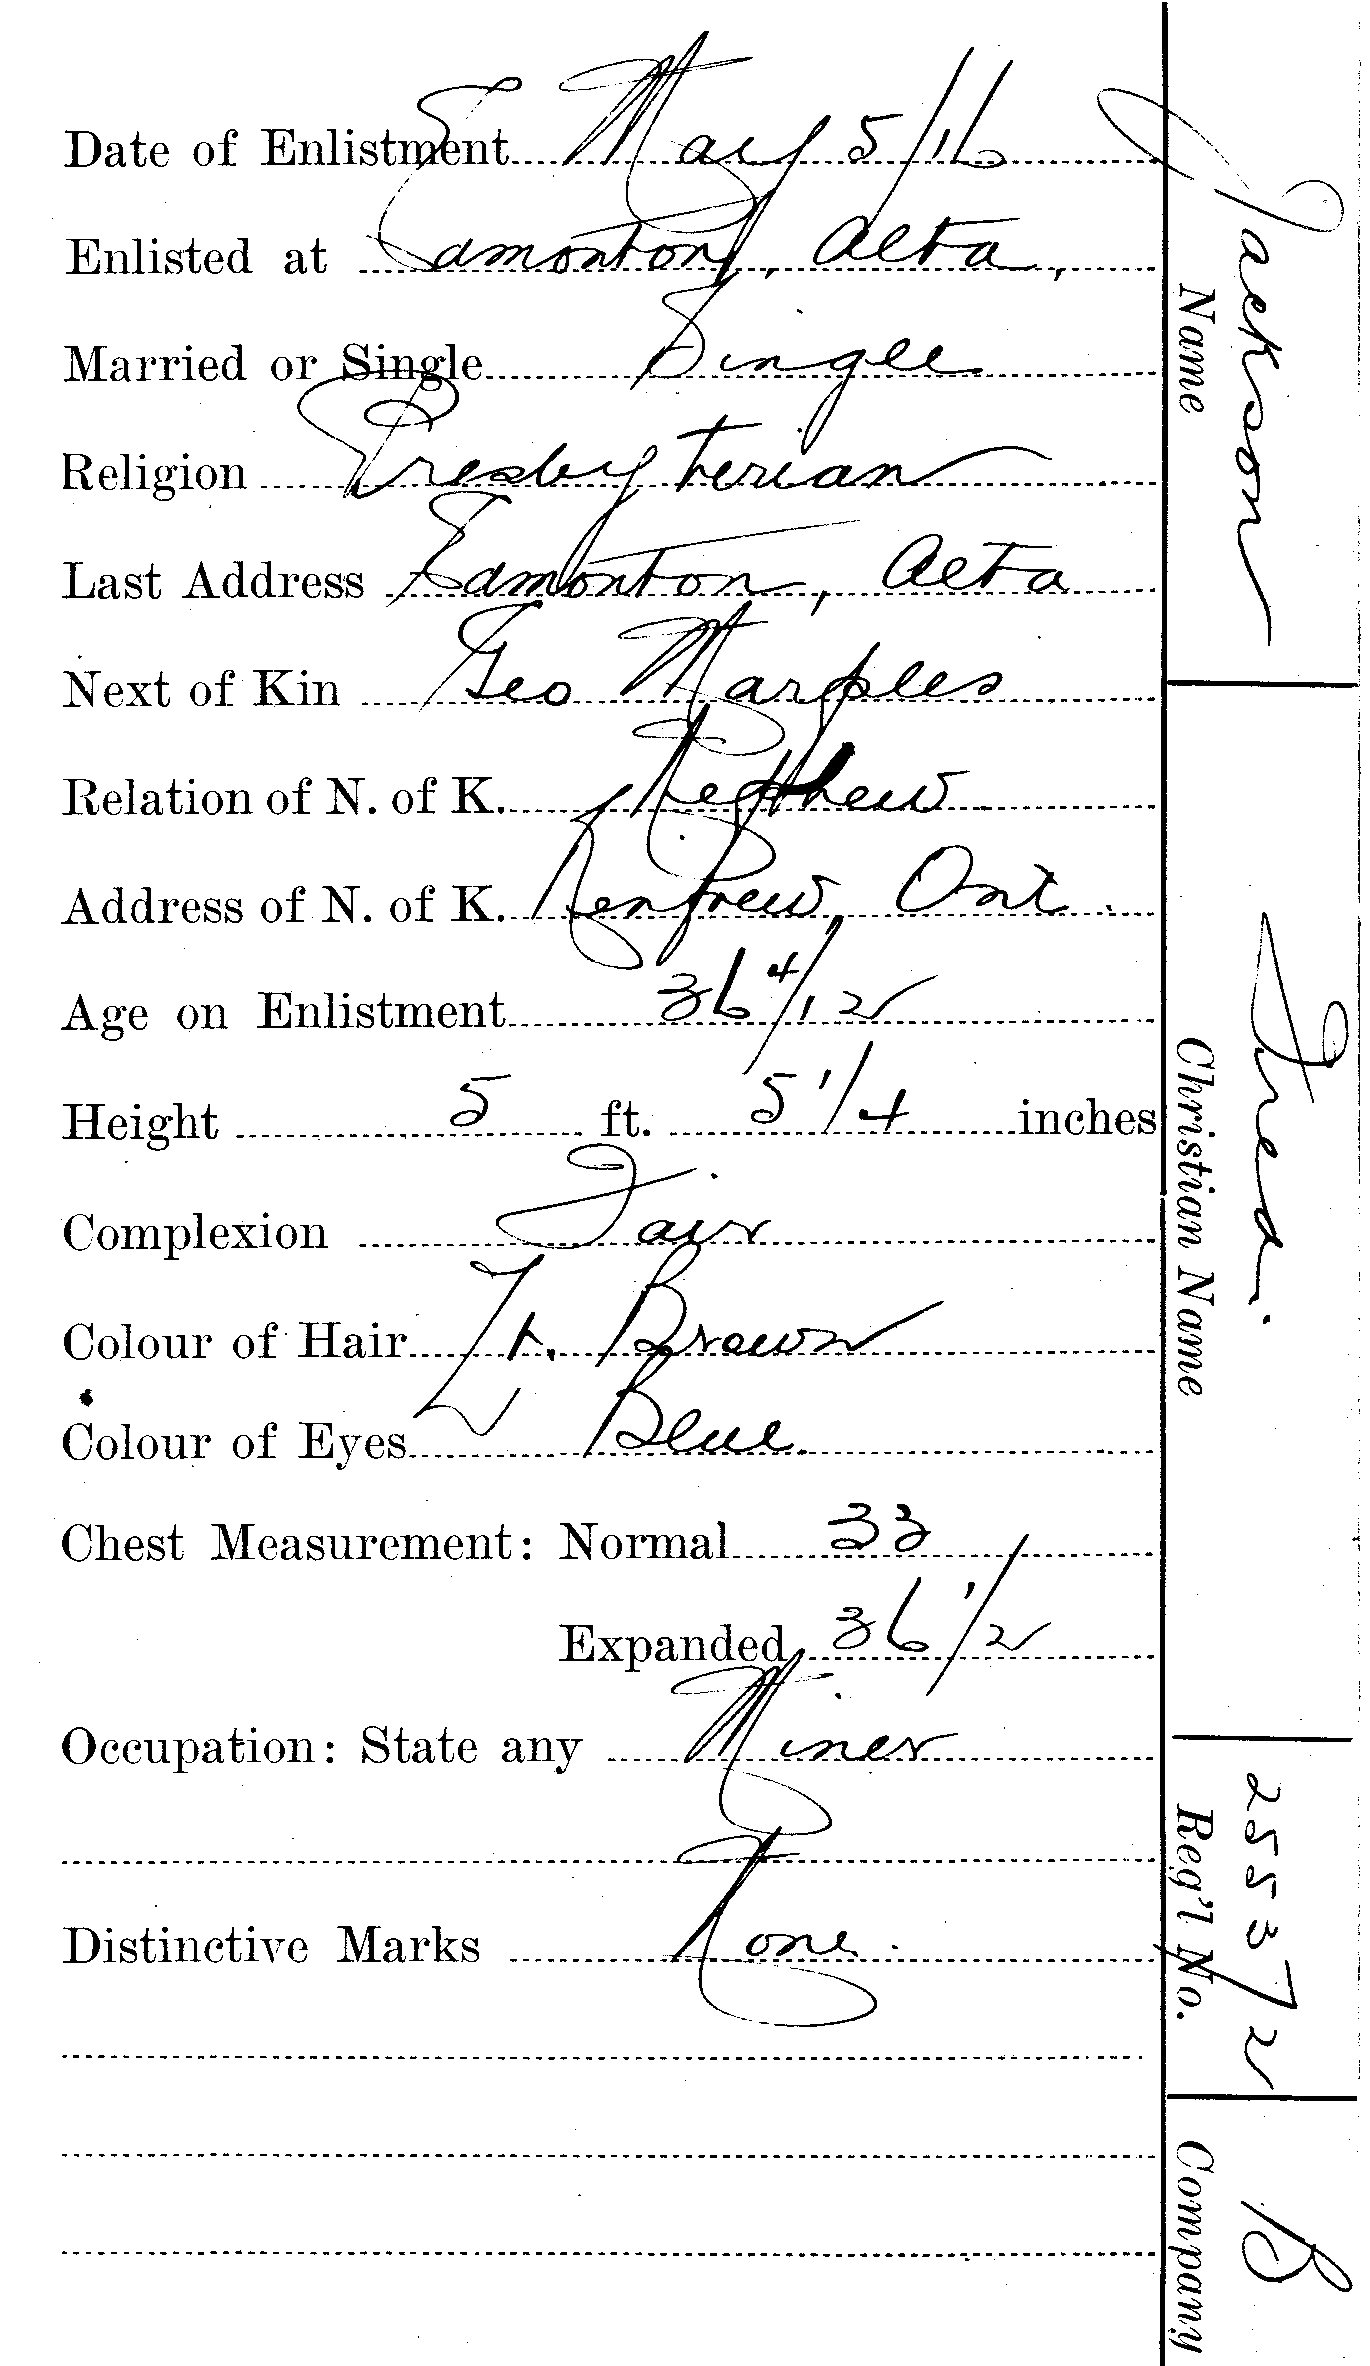 Date of Enlistment May 5/16
Enlisted at Edmonton, Alta,
Married or Single Single
Religion Presbyterian
Last Address Edmonton, Alta
Next of Kin Geo Marples
Relation of N. of K. Nephew
Address of N. of K. Renfrew, Ont.
Age on Enlistment 36 4/12
Height 5 ft. 5 1/4 inches
Complexion Fair
Colour of Hair Lt. Brown
Colour of Eyes Blue.
Chest Measurement: Normal 33
Expanded 36 1/2
Occupation: State any Miner
Distinctive Marks None.
Jackson
Name
Fred.
Christian Name
255372
Reg'l No.
B
Company